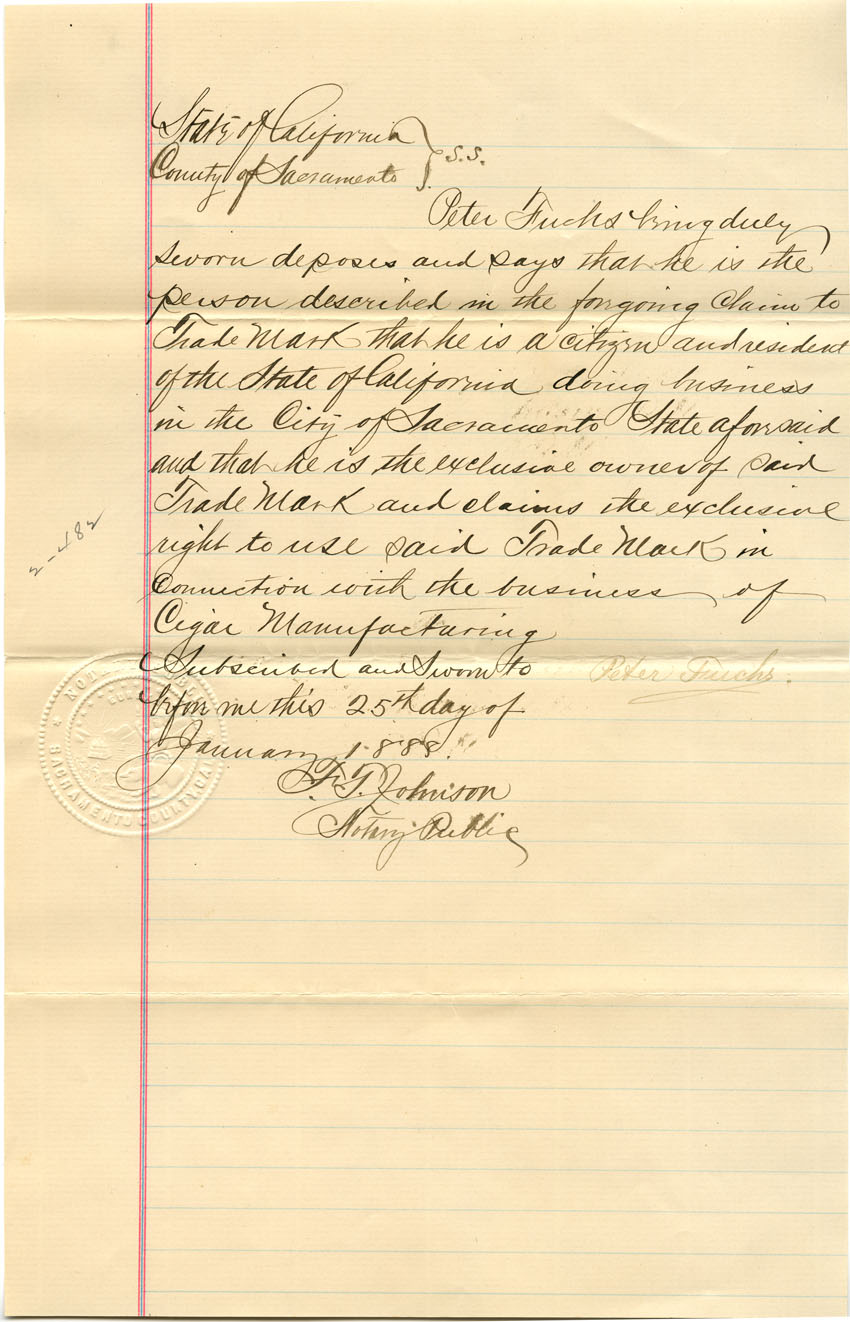 State of California } S.S.
County of Sacramento
Peter Fuchs being duly
sworn deposes and says that he is the
person described in the forgoing Claim to
Trade Mark that he is a citizen and resident
of the State of California doing business
in the City of Sacramento State aforesaid
and that he is the exclusive owner of said
Trade Mark and claims the exclusive
right to use said Trade Mark in
Connection with the business of
Cigar Manufacturing
Subscribed and Sworn to Peter Fuchs.
before me this 25th day of
January 1888.
F. T. Johnson
Notary Public
2-482
SACRAMENTO COUNTY, CAL